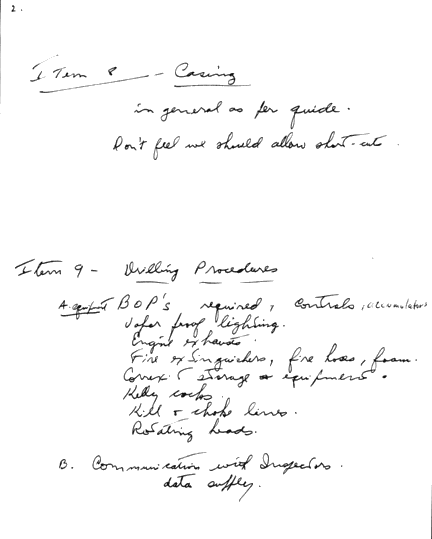 2.
Item 8 - Casing
in general as per guide.
Don't feel we should allow short-cuts.
Item 9 - Drilling Procedures
A. equipment BOP's required, Controls, accumulators
Vapor proof lighting.
Engine exhausts.
Fire extinguishers, fire hoses, foam.
Correct storage equipment.
Kelly cocks.
Kill & choke lines.
Rotating heads.
B. Communication with Inspectors.
data supply.